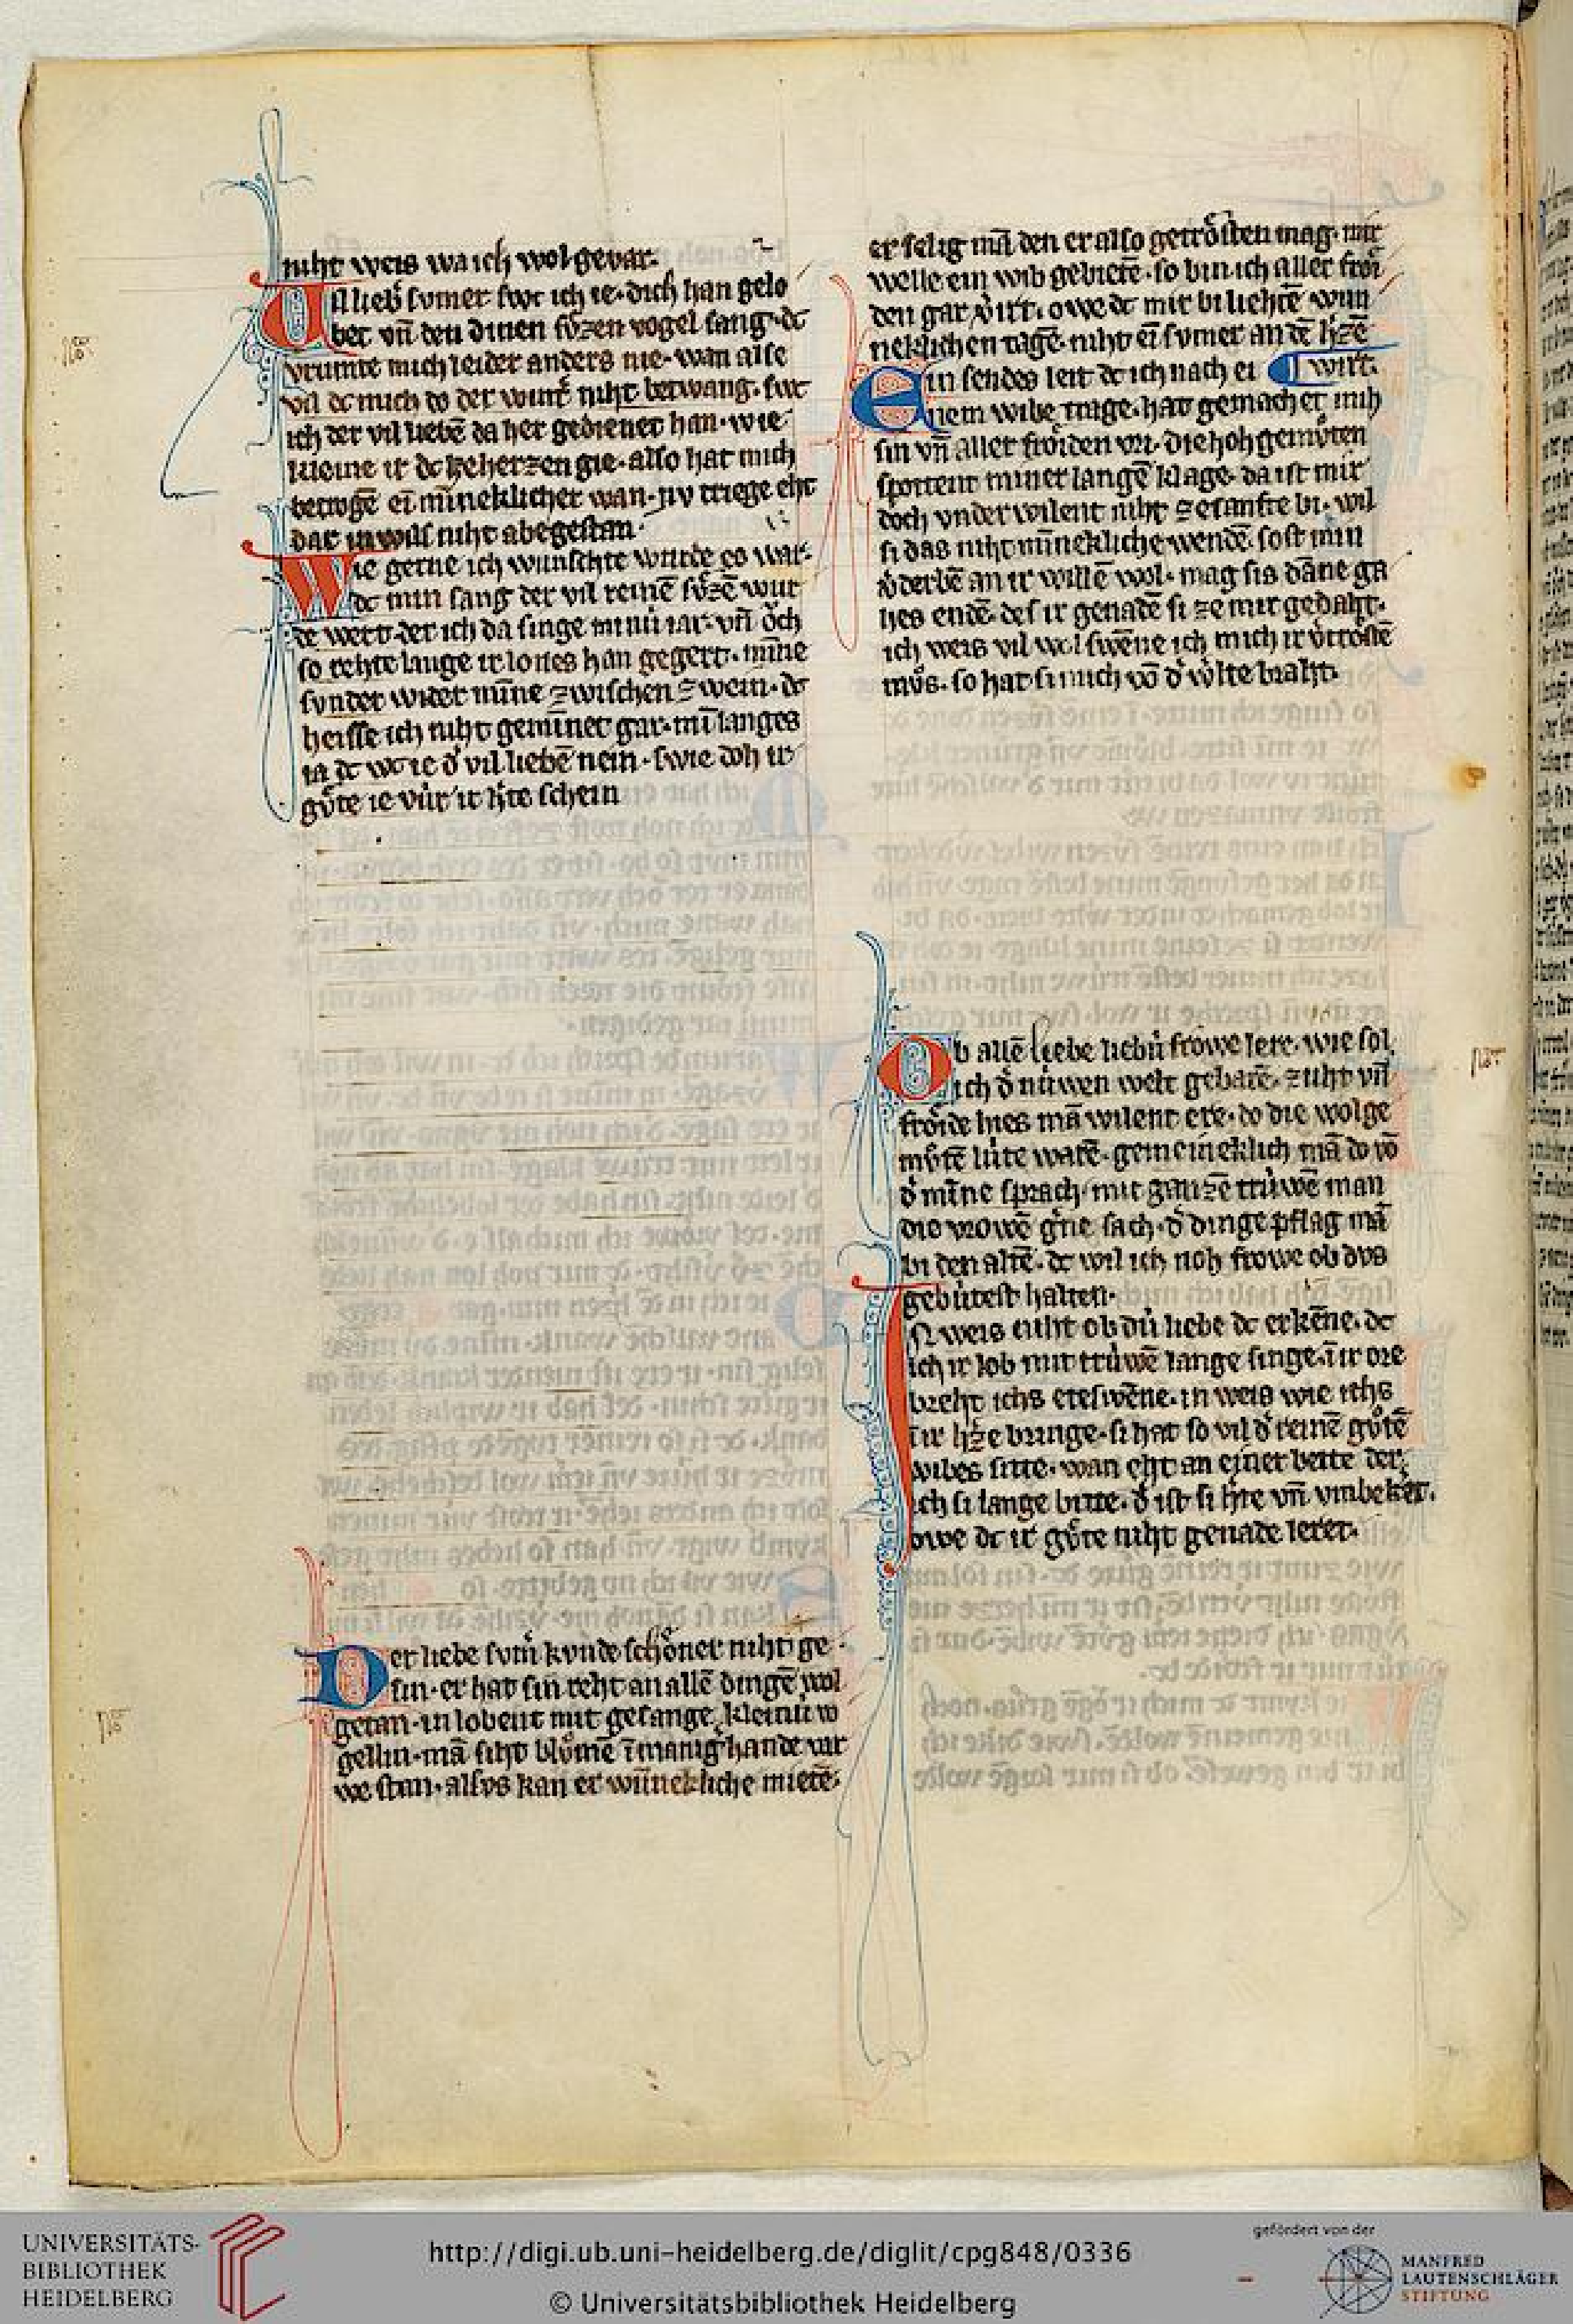 niht weis wa ich wol gevar.
Vil lieb͛ sumer swc ich ie dich han gelo
bet vn̄ den dinen sv̊zen vogel sang. dc
vrumte mich leider anders nie. wan alse
vil dc mich do der wint͛ niht betwang. swc
ich der vil liebē da her gedienet han. wie
kleine ir dc ze herzen gie. also hat mich
betrogē ei mīneklicher wan. nv triege eht
dar in wils niht abe gestan.
Wie gerne ich wunschte wurde es war.
dc min sang der vil reinē sv̊zē wur
de wert. der ich da singe minu̍ iar. vn̄ ǒch
so rehte lange ir lones han gegert. mīne
sunder wider mīne zwischen zwein. dc
heisse ich niht gemīnet gar. mī langes
ia dc wc ie d͛ vil liebē nein. swie doh ir
gu̍te ie vu̍r ir h͛te schein
Der liebe sum͛ kvnde schöner niht ge
sin. er hat sin reht an allē dingē wol
getan. in lobent mit gesange kleinu̍ vo
gellin. mā siht blv̊mē ī maniger hande var
we stan. alsvs kan er wu̅nekliche mietē.
er selig mā den er also getrösten mag. mir
welle ein wib gebietē. so bin ich aller fröi
den gar v͛irt. owe dc mir bi liehtē wun
neklichen tagē. niht ei sumer an dē h͛zē
Ein sendes leit dc ich nach ei ¶ wirt.
nem wibe trage. hat gemachet mih
sin vn̄ aller fröiden vri. die hoh gemv̊ten
spottent miner langē klage. da ist mir
doch vnder wilent niht ze sanfte bi. wil
si das niht mīnekliche wendē. so st min
v͛derbē an ir willē wol. mag sis dāne ga
hes endē. des ir genadē si ze mir gedaht.
ich weis vil wol swēne ich mich ir v͛trostē
mv̊s. so hat si mich vō d͛ w͛lte braht.
Ob allē liebe liebu̍ frowe lere. wie sol
ich d͛ nu̍wen welt gebarē. zuht vn̄
fröide hies mā wilent ere. do die wolge
mv̊tē lu̍te warē. gemeineklich mā do vō
d͛ mīne sprach. mit ganzē tru̍wē man
die vrowē g͛ne sach. d͛ dinge pflag mā
bi den altē. dc wil ich noh frowe ob dvs
gebu̍test halten.
In weis niht ob du̍ liebe dc erkēne. dc
ich ir lob mit tru̍wē lange singe. ī ir ore
breht ichs eteswēne. in weis wie ichs
ī ir h͛ze bringe. si hat so vil d͛ reinē gv̊tē
wibes sitte. wan eht an einer bette der
ich si lange bitte. d͛ ist si h͛te vn̄ vmbekeret.
owe dc ir gv̊te niht genade leret.
UNIVERSITÄTS-
BIBLIOTHEK
HEIDELBERG
http://digi.ub.uni-heidelberg.de/diglit/cpg848/0336
© Universitätsbibliothek Heidelberg
gefördert von der
MANFRED
LAUTENSCHLÄGER
STIFTUNG